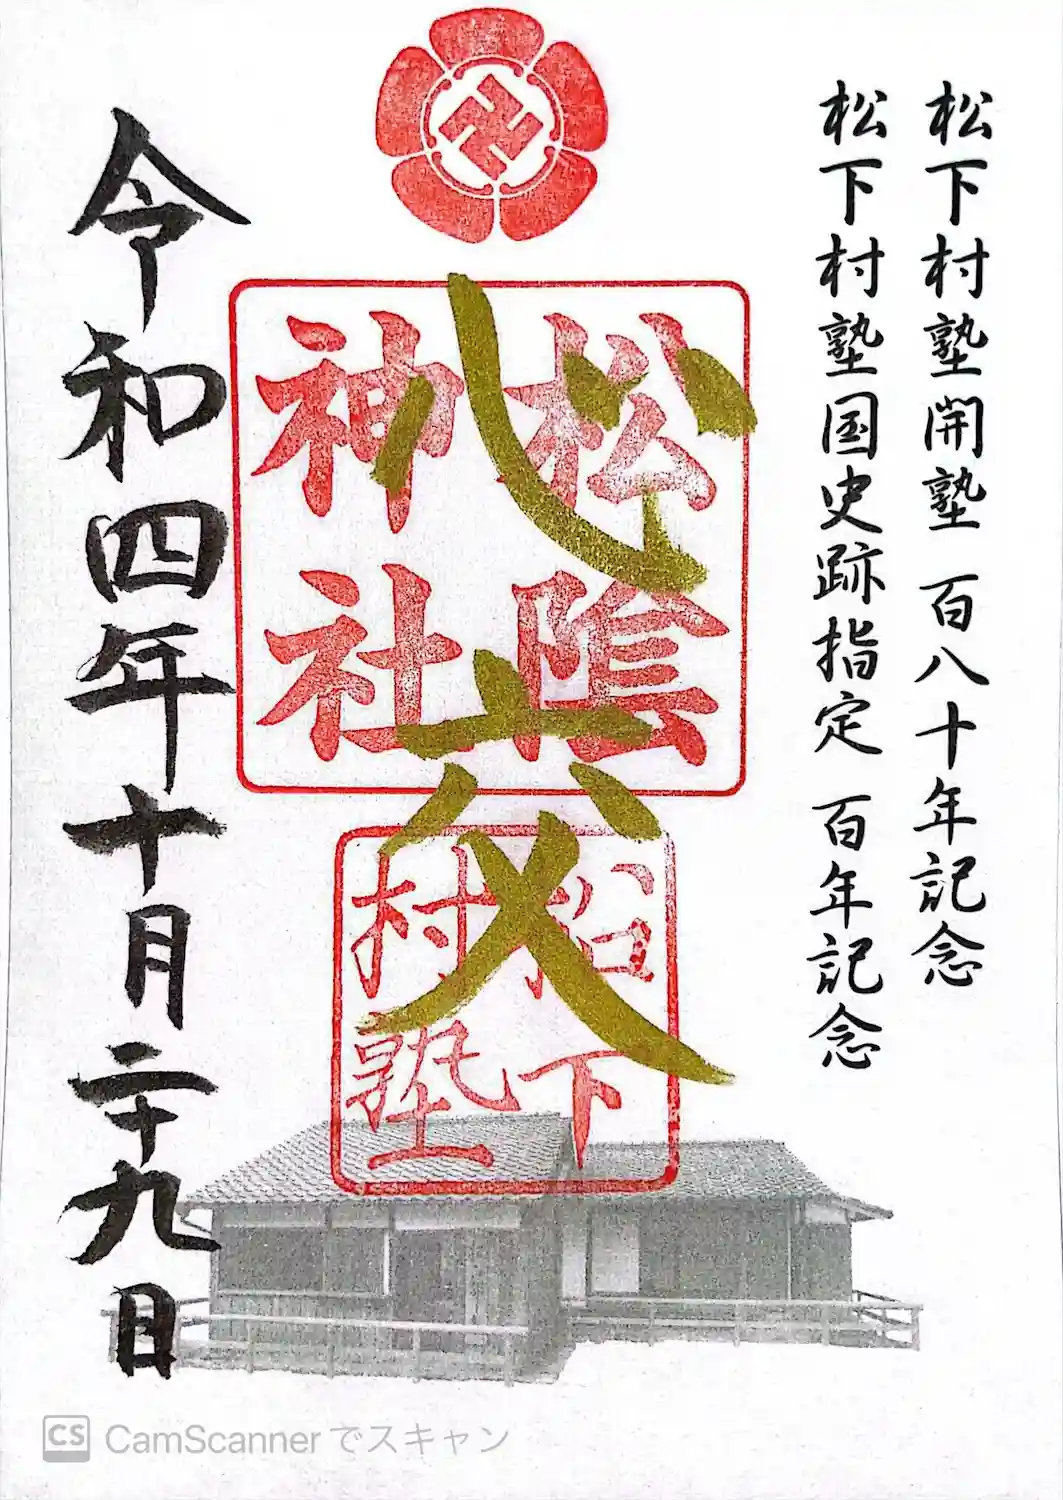 松下村塾開塾 百八十年記念
松下村塾国史跡指定 百年記念
心交
松陰
神社
松下
村塾
令和四年十月二十九日
CS CamScannerでスキャン